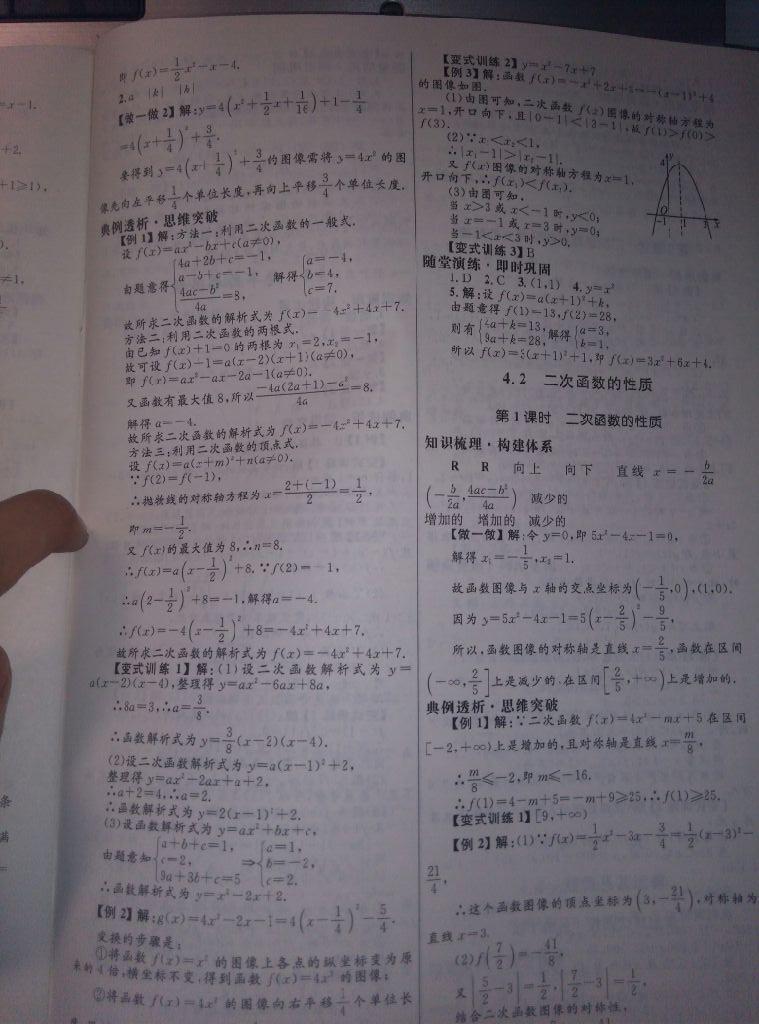 x-1.
+2.
+1≥1),
≠1,
条
满
即 f(x)=1/2x²-x-4.
2.a |k| |h|
【做一做 2】解:y=4(x²+1/2x+1/16)+1-1/4
=4(x+1/4)²+3/4.
要得到 y=4(x+1/4)²+3/4的图像需将 y=4x² 的图
像先向左平移1/4个单位长度,再向上平移3/4个单位长度.
典例透析·思维突破
【例 1】解:方法一:利用二次函数的一般式.
设 f(x)=ax²+bx+c(a≠0),
由题意得{4a+2b+c=-1, a-b+c=-1, 4ac-b²/4a=8, 解得{a=-4, b=4, c=7.
故所求二次函数的解析式为 f(x)=-4x²+4x+7.
方法二:利用二次函数的两根式.
由已知 f(x)+1=0 的两根为 x₁=2,x₂=-1,
故可设 f(x)+1=a(x-2)(x+1)(a≠0),
即 f(x)=ax²-ax-2a-1(a≠0).
又函数有最大值 8,所以-4a(2a+1)-a²/4a=8.
解得 a=-4.
故所求二次函数的解析式为 f(x)=-4x²+4x+7.
方法三:利用二次函数的顶点式.
设 f(x)=a(x+m)²+n(a≠0).
∵f(2)=f(-1),
∴抛物线的对称轴方程为 x=2+(-1)/2=1/2,
即 m=-1/2.
又 f(x)的最大值为 8,∴n=8.
∴f(x)=a(x-1/2)²+8.∵f(2)=-1,
∴a(2-1/2)²+8=-1,解得a=-4.
∴f(x)=-4(x-1/2)²+8=-4x²+4x+7.
故所求二次函数的解析式为 f(x)=-4x²+4x+7.
【变式训练 1】解:(1)设二次函数解析式为 y=
a(x-2)(x-4),整理得 y=ax²-6ax+8a,
∴8a=3,∴a=3/8.
∴函数解析式为 y=3/8(x-2)(x-4).
(2)设二次函数解析式为 y=a(x-1)²+2,
整理得 y=ax²-2ax+a+2,
∴a+2=4,∴a=2.
∴函数解析式为 y=2(x-1)²+2.
(3)设函数解析式为 y=ax²+bx+c,
由题意知{a+b+c=1, c=2, 9a+3b+c=5 ⇒{a=1, b=-2, c=2.
∴函数解析式为 y=x²-2x+2.
【例 2】解:g(x)=4x²-2x-1=4(x-1/4)²-5/4.
变换的步骤是:
①将函数 f(x)=x² 的图像上各点的纵坐标变为原
来的 4 倍,横坐标不变,得到函数 f(x)=4x² 的图像;
②将函数 f(x)=4x² 的图像向右平移1/4个单位长
【变式训练 2】y=x²-7x+7
【例 3】解:函数 f(x)=-x²+2x+3=-(x-1)²+4
的图像如图.
(1)由图可知,二次函数 f(x)图像的对称轴方程为
x=1,开口向下,且|0-1|<|3-1|,故 f(1)>f(0)>
f(3).
(2)∵x₁<x₂<1,
∴|x₁-1|>|x₂-1|.
又 f(x)图像的对称轴方程为x=1,
开口向下,∴f(x₁)<f(x₂).
(3)由图可知,
当 x>3 或 x<-1 时,y<0;
当 x=-1 或 x=3 时,y=0;
当-1<x<3 时,y>0.
4
O
-1
1
x
【变式训练 3】B
随堂演练·即时巩固
1.D 2.C 3.(1,1) 4.y=x²
5.解:设 f(x)=a(x+1)²+k,
由题意得 f(1)=13,f(2)=28,
则有{4a+k=13, 9a+k=28, 解得{a=3, k=1.
所以 f(x)=3(x+1)²+1,即 f(x)=3x²+6x+4.
4.2 二次函数的性质
第 1 课时 二次函数的性质
知识梳理·构建体系
R R 向上 向下 直线 x=-b/2a
(-b/2a,4ac-b²/4a) 减少的
增加的 增加的 减少的
【做一做】解:令 y=0,即 5x²-4x-1=0,
解得 x₁=-1/5,x₂=1.
故函数图像与 x 轴的交点坐标为(-1/5,0),(1,0).
因为 y=5x²-4x-1=5(x-2/5)²-9/5,
所以,函数图像的对称轴是直线 x=2/5,函数在区间
(-∞,2/5]上是减少的,在区间[2/5,+∞)上是增加的.
典例透析·思维突破
【例 1】解:∵二次函数 f(x)=4x²-mx+5 在区间
[-2,+∞)上是增加的,且对称轴是直线 x=m/8,
∴m/8≤-2,即 m≤-16.
∴f(1)=4-m+5=-m+9≥25,∴f(1)≥25.
【变式训练 1】[9,+∞)
【例 2】解:(1)∵f(x)=1/2x²-3x-3/4=1/2(x-3)²-
21/4,
∴这个函数图像的顶点坐标为(3,-21/4),对称轴为
直线 x=3.
(2)f(7/2)=-41/8,
又|5/2-3|=1/2,|7/2-3|=1/2,
结合二次函数图像的对称性,